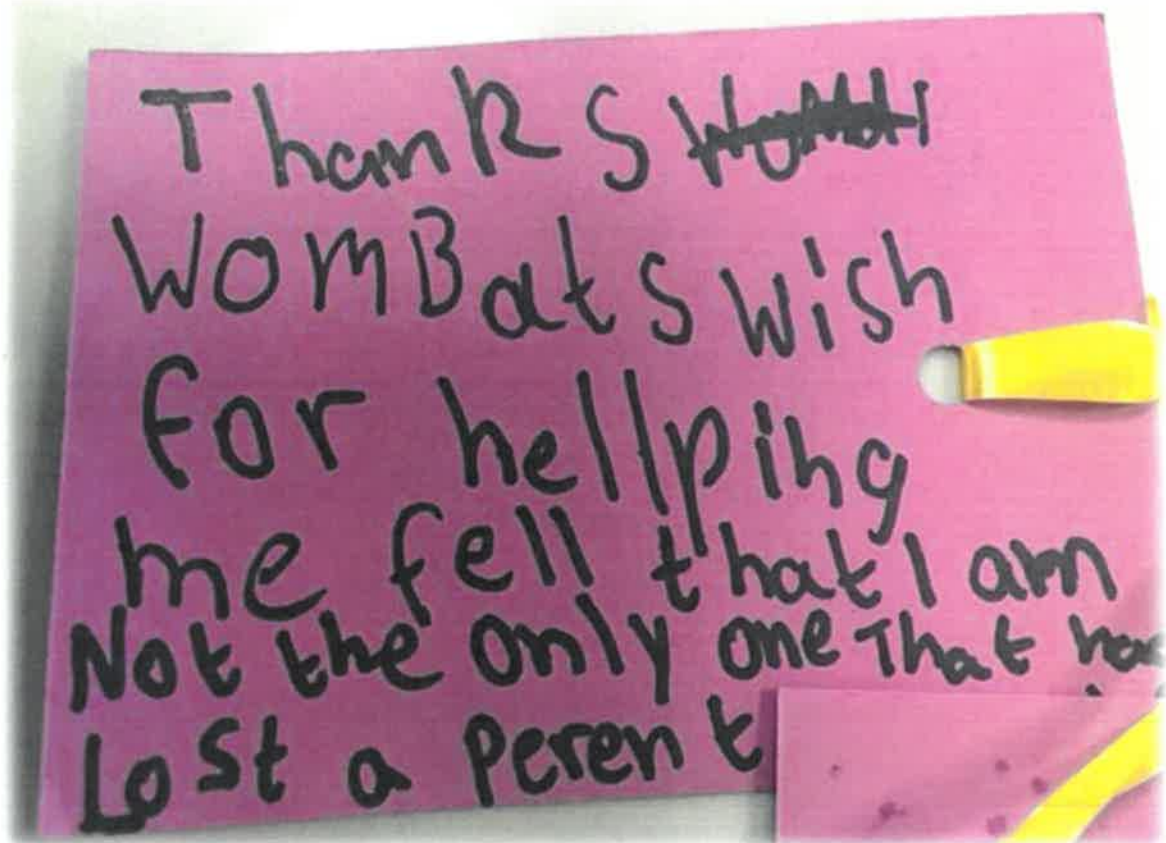 Thanks
WomBats Wish
for hellping
me fell that I am
Not the only one That has
Lost a Perent